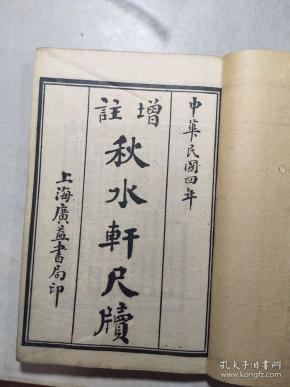 中華民國四年
增註
秋水軒尺牘
上海廣益書局印
孔夫子旧书网